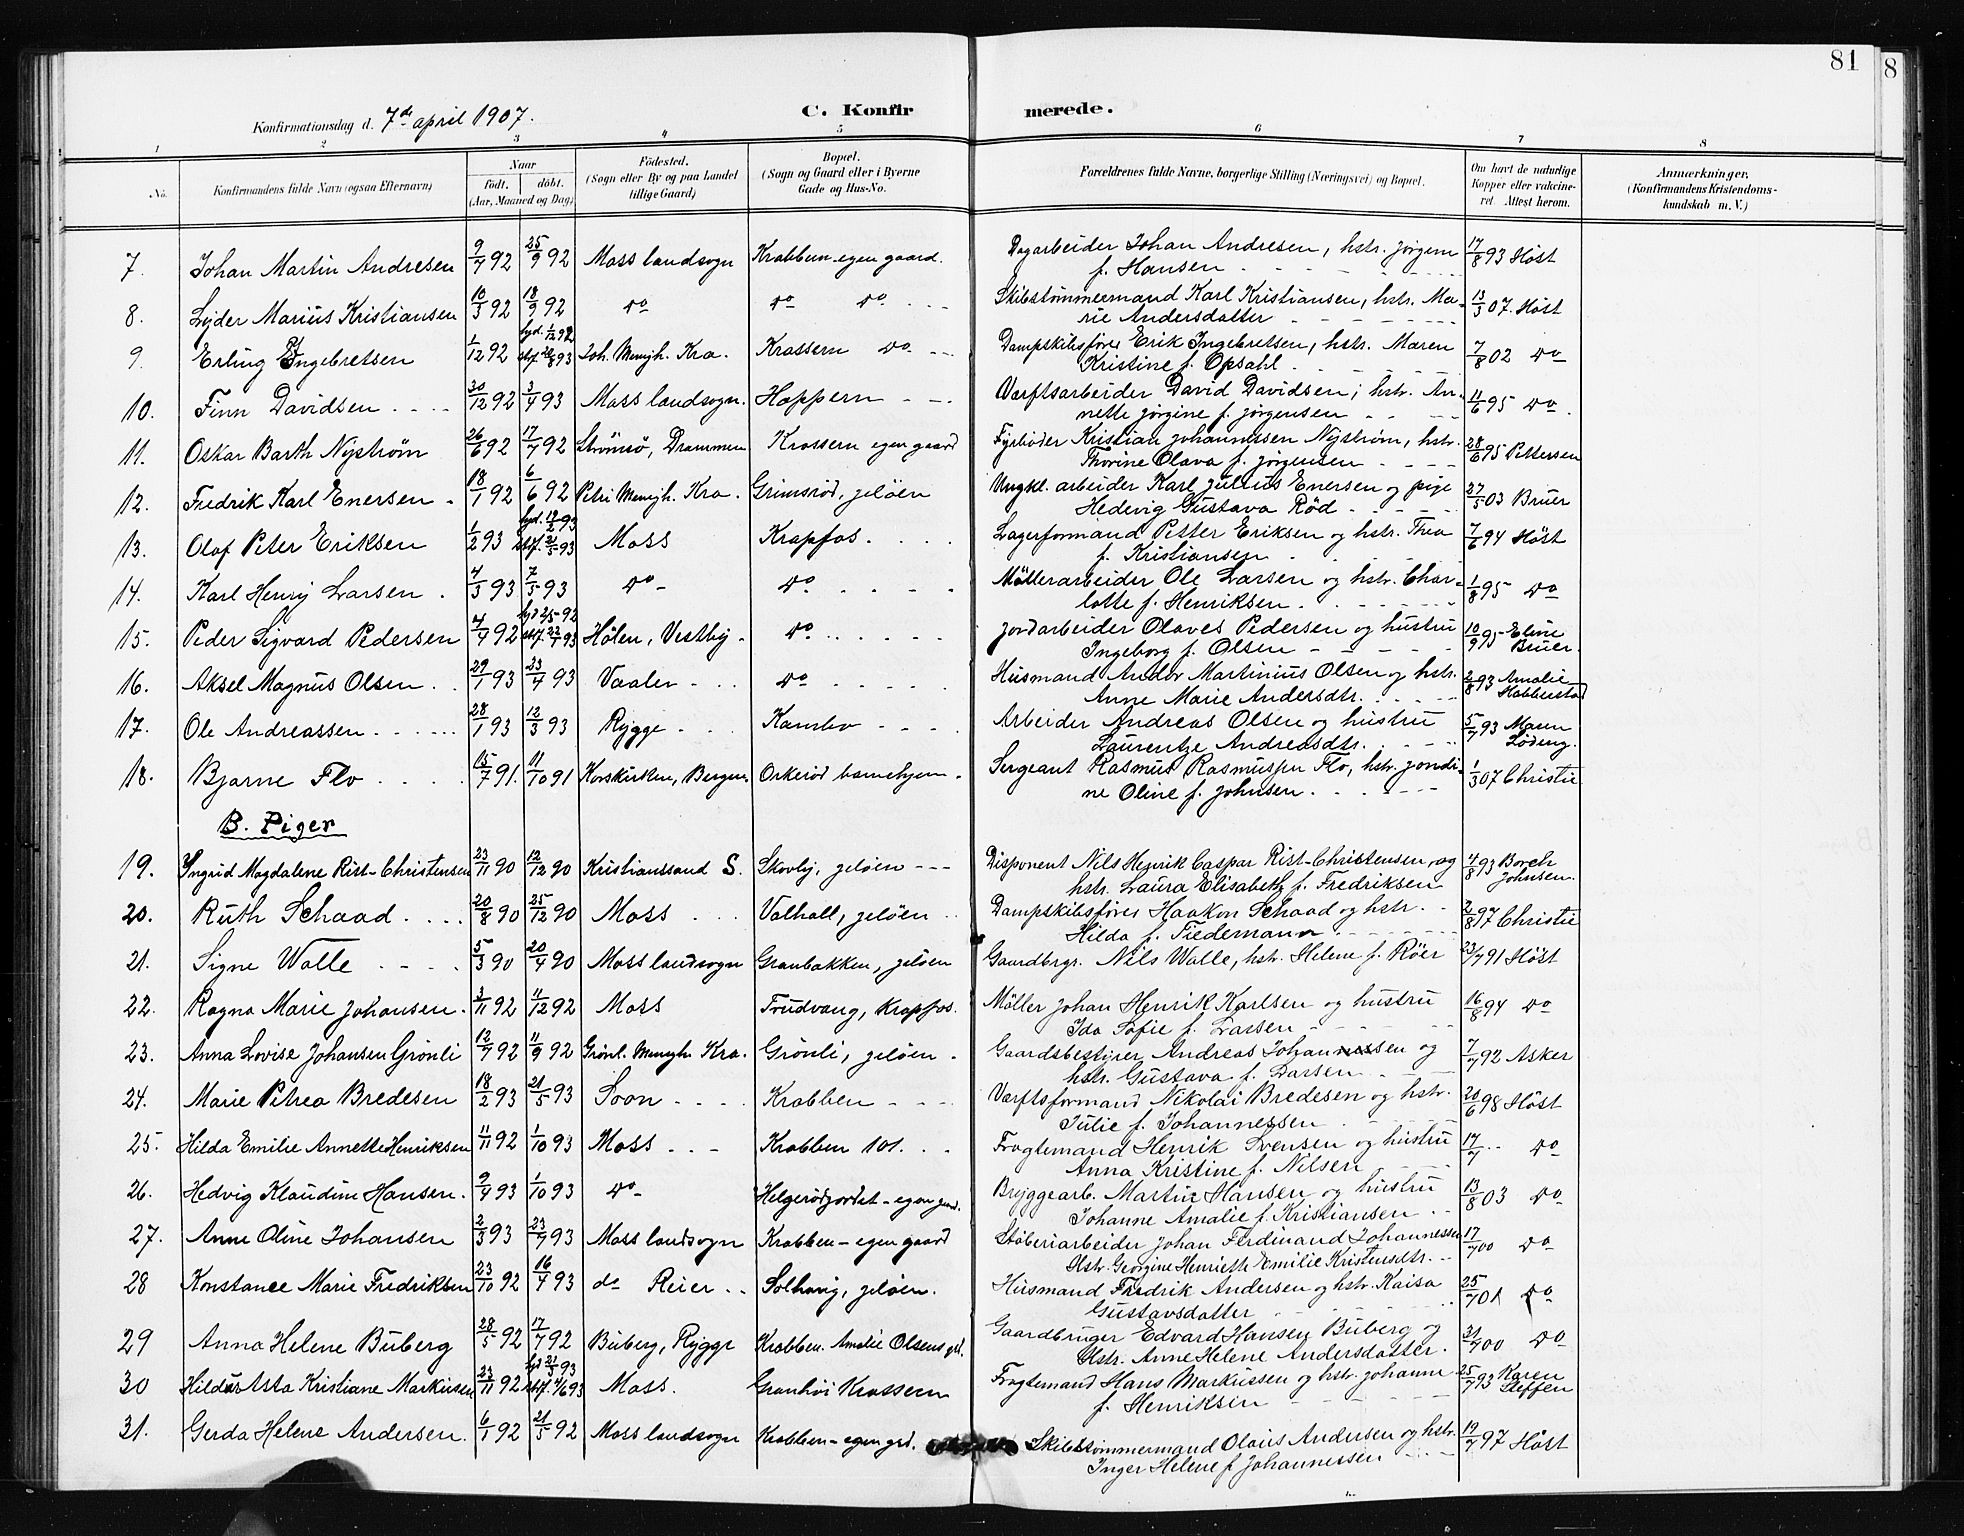 81
8
C. Konfirmerede.
Konfirmationsdag d. 7de april 1907.
1 2 3 4 5 6 7 8
No.
Konfirmandens fulde Navn (ogsaa Efternavn)
Naar
født. døbt.
(Aar, Maaned og Dag)
Fødested.
(Sogn eller By og paa Landet
tillige Gaard)
Bopæl.
(Sogn og Gaard eller i Byerne
Gade og Hus-No.
Forældrenes fulde Navne, borgerlige Stilling (Næringsvei) og Bopæl.
Om havt de naturlige
Kopper eller vakcine-
ret. Attest herom.
Anmærkninger.
(Konfirmandens Kristendoms-
kundskab m. V.)
7. Johan Martin Andresen 9/7 92 25/9 92 Moss landsogn Krabbern egen gaard. Dagarbeider Johan Andresen, hstr. Jørgine 17/8 93 Høst
f. Hansen
8. Lyder Marius Kristiansen 10/3 92 18/9 92 do do do Skibstømmermand Karl Kristiansen, hstr. Ma- 13/3 07. Høst
rie Andersdatter
9. Erling Ingebretsen 1/12 92 hjd. 1/12 92 Joh. Menigh. Kra. Krossern do Dampskibsfører Erik Ingebretsen, hstr. Maren 7/8 02 do
stf. 20/8 93 Kristine f. Opsahl
10. Finn Davidsen 30/12 92 3/4 93 Moss landsogn. Hoppern Værftsarbeider David Davidsen; hstr. An- 11/6 95 do
nette Jørgine f. Jørgensen
11. Oskar Barth Nystrøm 26/6 92 17/7 92 Strømsø, Drammen Krossern egen gaard Fyrbøder Kristian Johannessen Nystrøm, hstr. 28/6 95 Pettersen
Thorine Olava f. Jørgensen
12. Fredrik Karl Enersen 18/1 92 6/6 92 Petri Menigh. Kra. Grimsrød, Jeløen Ungkl. arbeider Karl Julius Enersen og pige 27/5 03 Bruer
Hedevig Gustava Rød
13. Olaf Peter Eriksen 1/2 93 hjd. 12/2 93 Moss Krapfos Lagerformand Petter Eriksen og hstr. Thea 7/6 94 Høst
stf. 21/5 93 f. Kristiansen
14. Karl Henry Larsen 4/3 93 7/5 93 do do Møllerarbeider Ole Larsen og hstr. Char- 1/8 95 do
lotte f. Henriksen
15. Peder Sigvard Pedersen 4/4 92 hjd 25/5 92 Hølen, Vestby do Jordarbeider Olaves Pedersen og hustru 10/9 95 Eline
stf. 22/1 93 Ingeborg f. Olsen Bruer.
16. Aksel Magnus Olsen 29/1 93 23/4 93 Vaaler do Husmand Andor Martinius Olsen og hstr. 2/8 93 Amalie
Anne Marie Andersdtr. Habberstad
17. Ole Andreassen 28/1 93 12/3 93 Rygge Kambo Arbeider Andreas Olsen og hustru 5/7 93 Maren
Laurentze Andreasdtr. Løding.
18. Bjarne Flo 15/7 91. 11/10 91 Korskirken, Bergen Orkerød barnehjem Sergeant Rasmus Rasmussen Flo, hstr. Jondi- 1/3 07 Christie
ne Oline f. Johnsen
B. Piger
19. Yngrid Magdalene Rist-Christensen 23/11 90 12/12 90 Kristianssand S. Skovly, Jeløen Disponent Nils Henrik Caspar Rist-Christensen og 4/8 93 Borch
hstr. Laura Elisabeth f. Fredriksen Johnsen.
20. Ruth Schaad 20/8 90 25/12 90 Moss Valhall, Jeløen Dampskibsfører Haakon Schaad og hstr. 2/8 97 Christie
Hilda f. Tiedemann
21. Signe Walle 5/3 90 20/4 90 Moss landsogn Granbakken, Jeløen Gaardbrgr. Nils Walle, hstr. Helene f. Røer 23/7 91 Høst
22. Ragna Marie Johansen 3/11 92 11/12 92 Moss Trudvang, Krapfos. Møller Johan Henrik Karlsen og hustru 16/8 94 do
Ida Sofie f. Larsen
23. Anna Lovise Johansen Grønli 12/7 92 11/9 92 Grønl. Menigh. Kra. Grønli, Jeløen Gaardsbestyrer Andreas Johannessen og 7/7 92 Asker
hstr. Gustava f. Larsen
24. Marie Petrea Bredesen 18/2 93 21/5 93 Soon Krabben Værftsformand Nikolai Bredesen og hstr. 20/6 98 Høst
Julie f. Johannessen
25. Hilda Emilie Annette Henriksen 11/11 92 1/10 93 Moss Krabben 101. Fragtemand Henrik Svensen og hustru 17/7 do
Anna Kristine f. Nilsen
26. Hedvig Klaudine Hansen. 9/4 93 1/10 93 do Helgerødjordet - egen gaard. Bryggearb. Martin Hansen og hustru 13/8 03 do
Johanne Amalie f. Kristiansen
27. Anne Oline Johansen 2/3 93 23/7 93 Moss landsogn Krabben - egen gaard Støberiarbeider Johan Ferdinand Johannessen 17/7 00 do
Hstr. Georgine Henriette Emilie Kristensdtr.
28 Konstance Marie Fredriksen 23/10 92 16/4 93 do Reier Solhaug, Jeløen. Husmand Fredrik Andersen og hstr. Kaisa 25/7 01 do
Gustavsdatter
29 Anna Helene Buberg 28/5 92 17/7 92 Buberg, Rygge Krabben. Amalie Olsens grd. Gaardbruger Edvard Hansen Buberg og 31/7 00 do
Hstr. Anne Helene Andersdatter.
30 Hildur Asta Kristiane Markusen 23/11 92 hjd 21/5 93 Moss. Granhöi Krossern Fragtemand Hans Markussen og hstr. Johanne 25/7 93 Karen
stf. 4/6 93 f. Henriksen Steffen
31. Gerda Helene Andersen. 6/1 92 21/5 92 Moss landsogn Krabben - egen grd. Skibstømmermand Olaus Andersen og hstr. 19/7 97 Høst
Inger Helene f. Johannessen